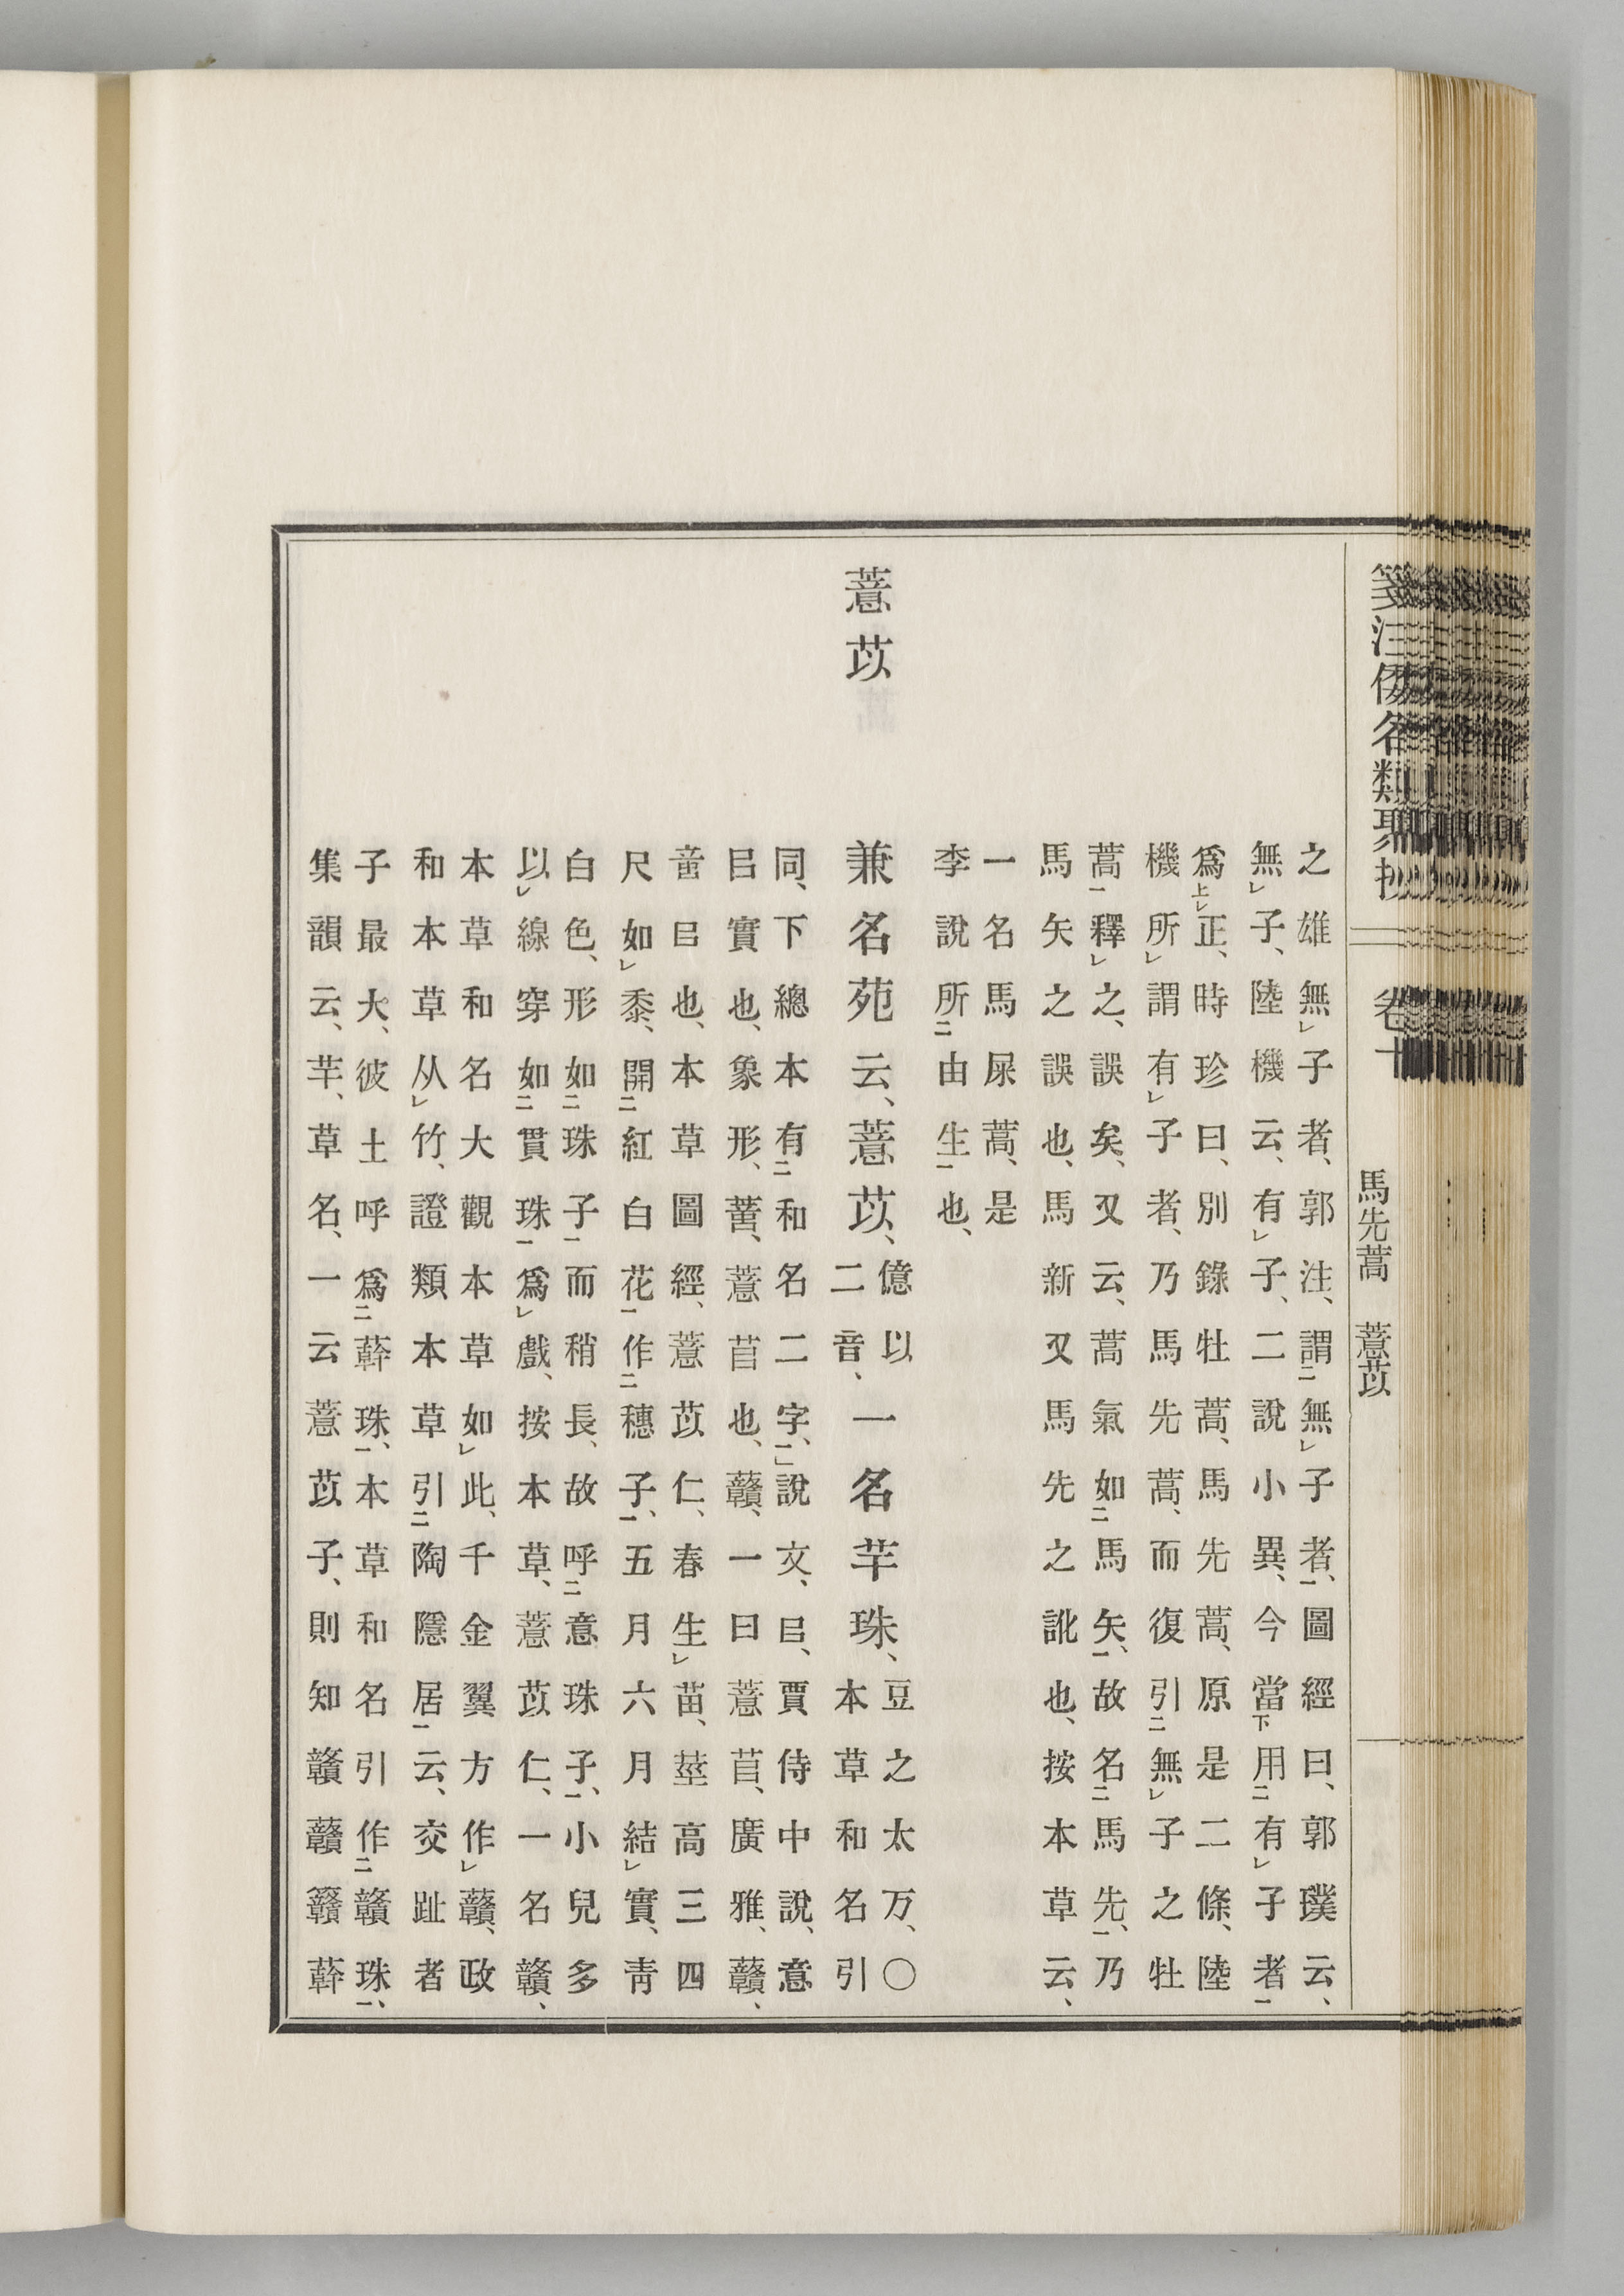 箋注倭名類聚抄 卷十 馬先蒿 薏苡
之雄無㆑子者、郭注、謂㆘無㆑子者㆒、圖經曰、郭璞云、
無㆑子、陸機云、有㆑子、二說小異、今當㆘用㆓有㆑子者㆒
爲㆖㆑正、時珍曰、別錄牡蒿、馬先蒿、原是二條、陸
機所㆑謂有㆑子者、乃馬先蒿、而復引㆓無㆑子之牡
蒿㆒釋㆑之、誤矣、又云、蒿氣如㆓馬矢㆒、故名㆓馬先㆒、乃
馬矢之誤也、馬新又馬先之訛也、按本草云、
一名馬屎蒿、是
李說所㆓由生㆒也、
薏苡
兼名苑云、薏苡、億以二音、一名芉珠、豆之太万、〇本草和名引
同、下總本有㆓和名二字㆒、說文、㠯、賈侍中說、意
㠯實也、象形、䔬、薏苢也、贛、一曰薏苢、廣雅、贛、
䔬㠯也、本草圖經、薏苡仁、春生㆑苗、莖高三四
尺如㆑黍、開㆓紅白花㆒作㆓穗子㆒、五月六月結㆑實、靑
白色、形如㆓珠子㆒而稍長、故呼㆓意珠子㆒、小兒多
以㆑線穿如㆓貫珠㆒爲㆑戲、按本草、薏苡仁、一名贛、
本草和名大觀本草如㆑此、千金翼方作㆑贛、政
和本草从㆑竹、證類本草引㆓陶隱居㆒云、交趾者
子最大、彼土呼爲㆓䔍珠㆒、本草和名引作㆓贛珠㆒、
集韻云、芉、草名、一云薏苡子、則知贛贛簳䔍